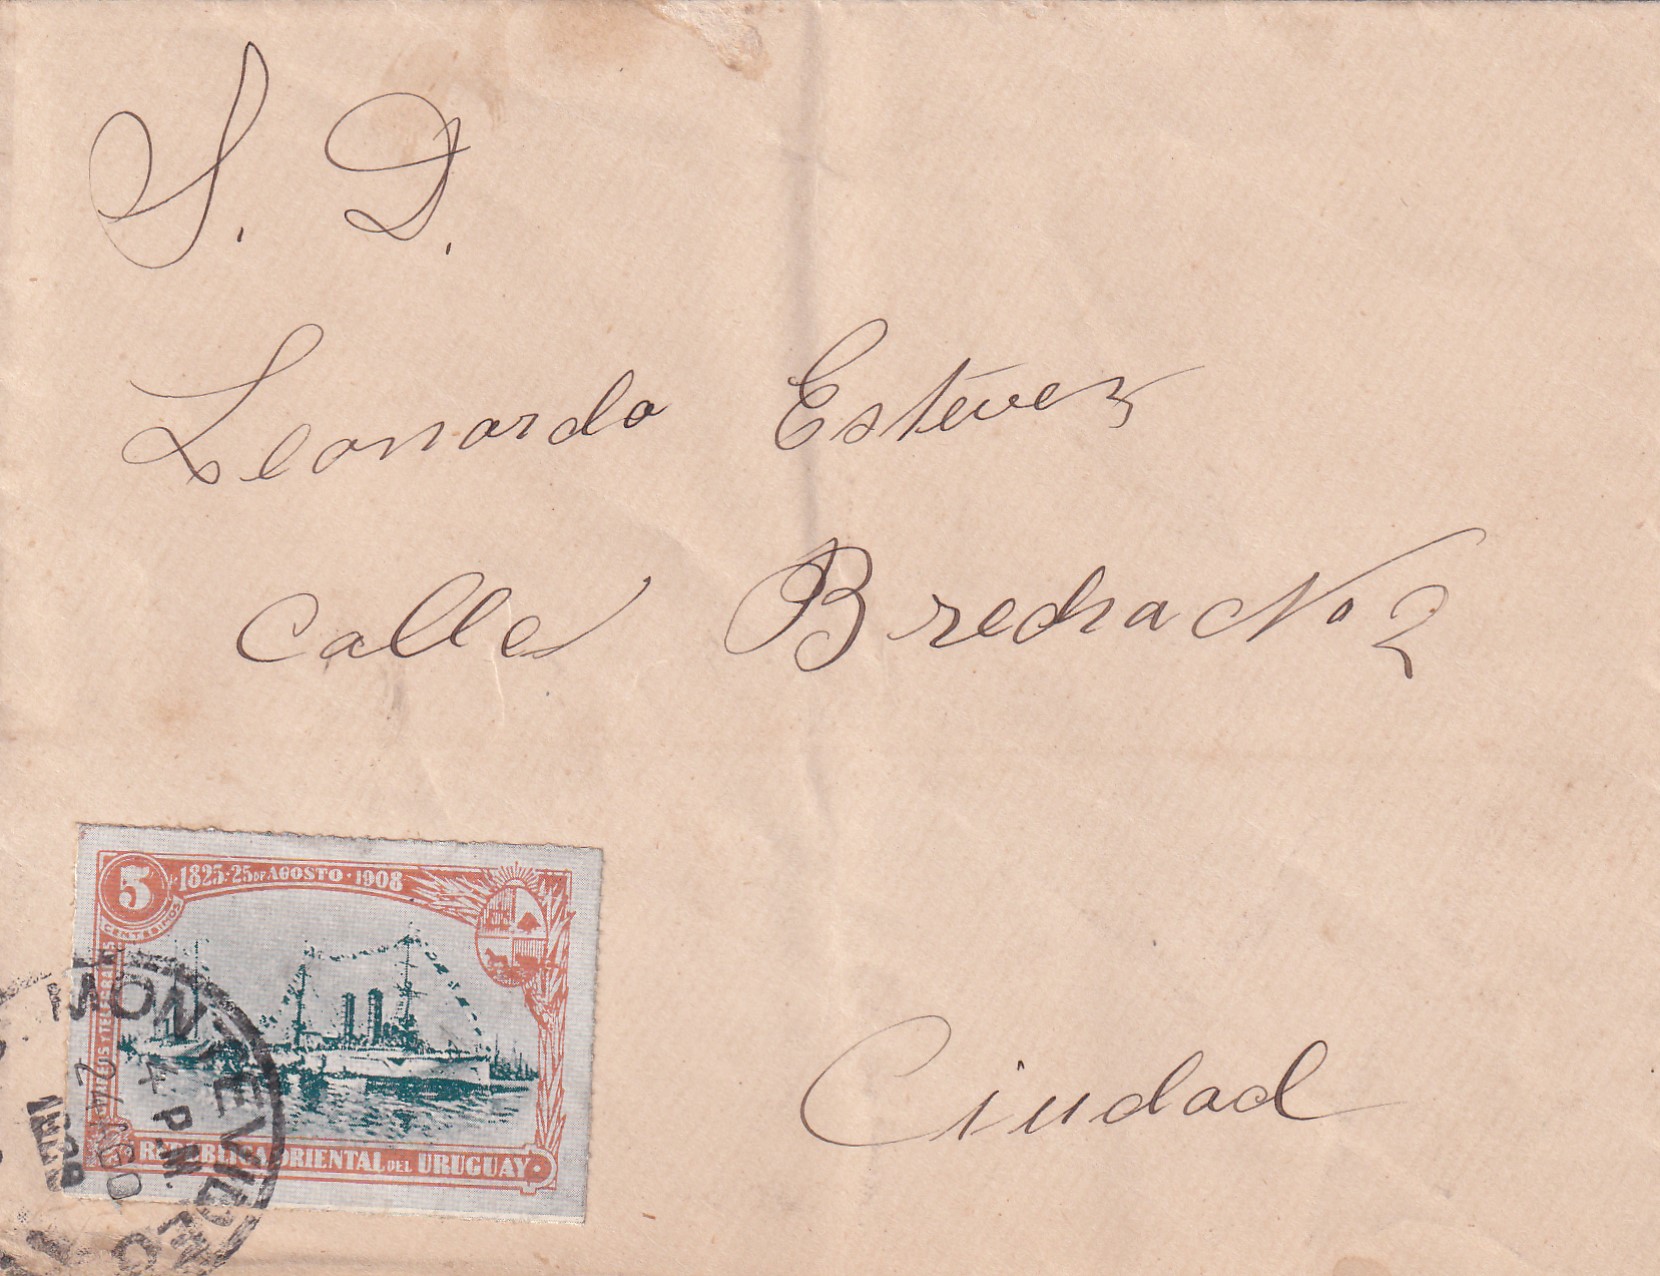 S. D.
Leonardo Estevez
Calle Brecha No 2
Ciudad
5
CENTESIMOS
1825·25 DE AGOSTO·1908
CORREOS Y TELEGRAFOS
REPUBLICA ORIENTAL DEL URUGUAY
MONTEVIDEO
4 P.M.
24 AGO
1908